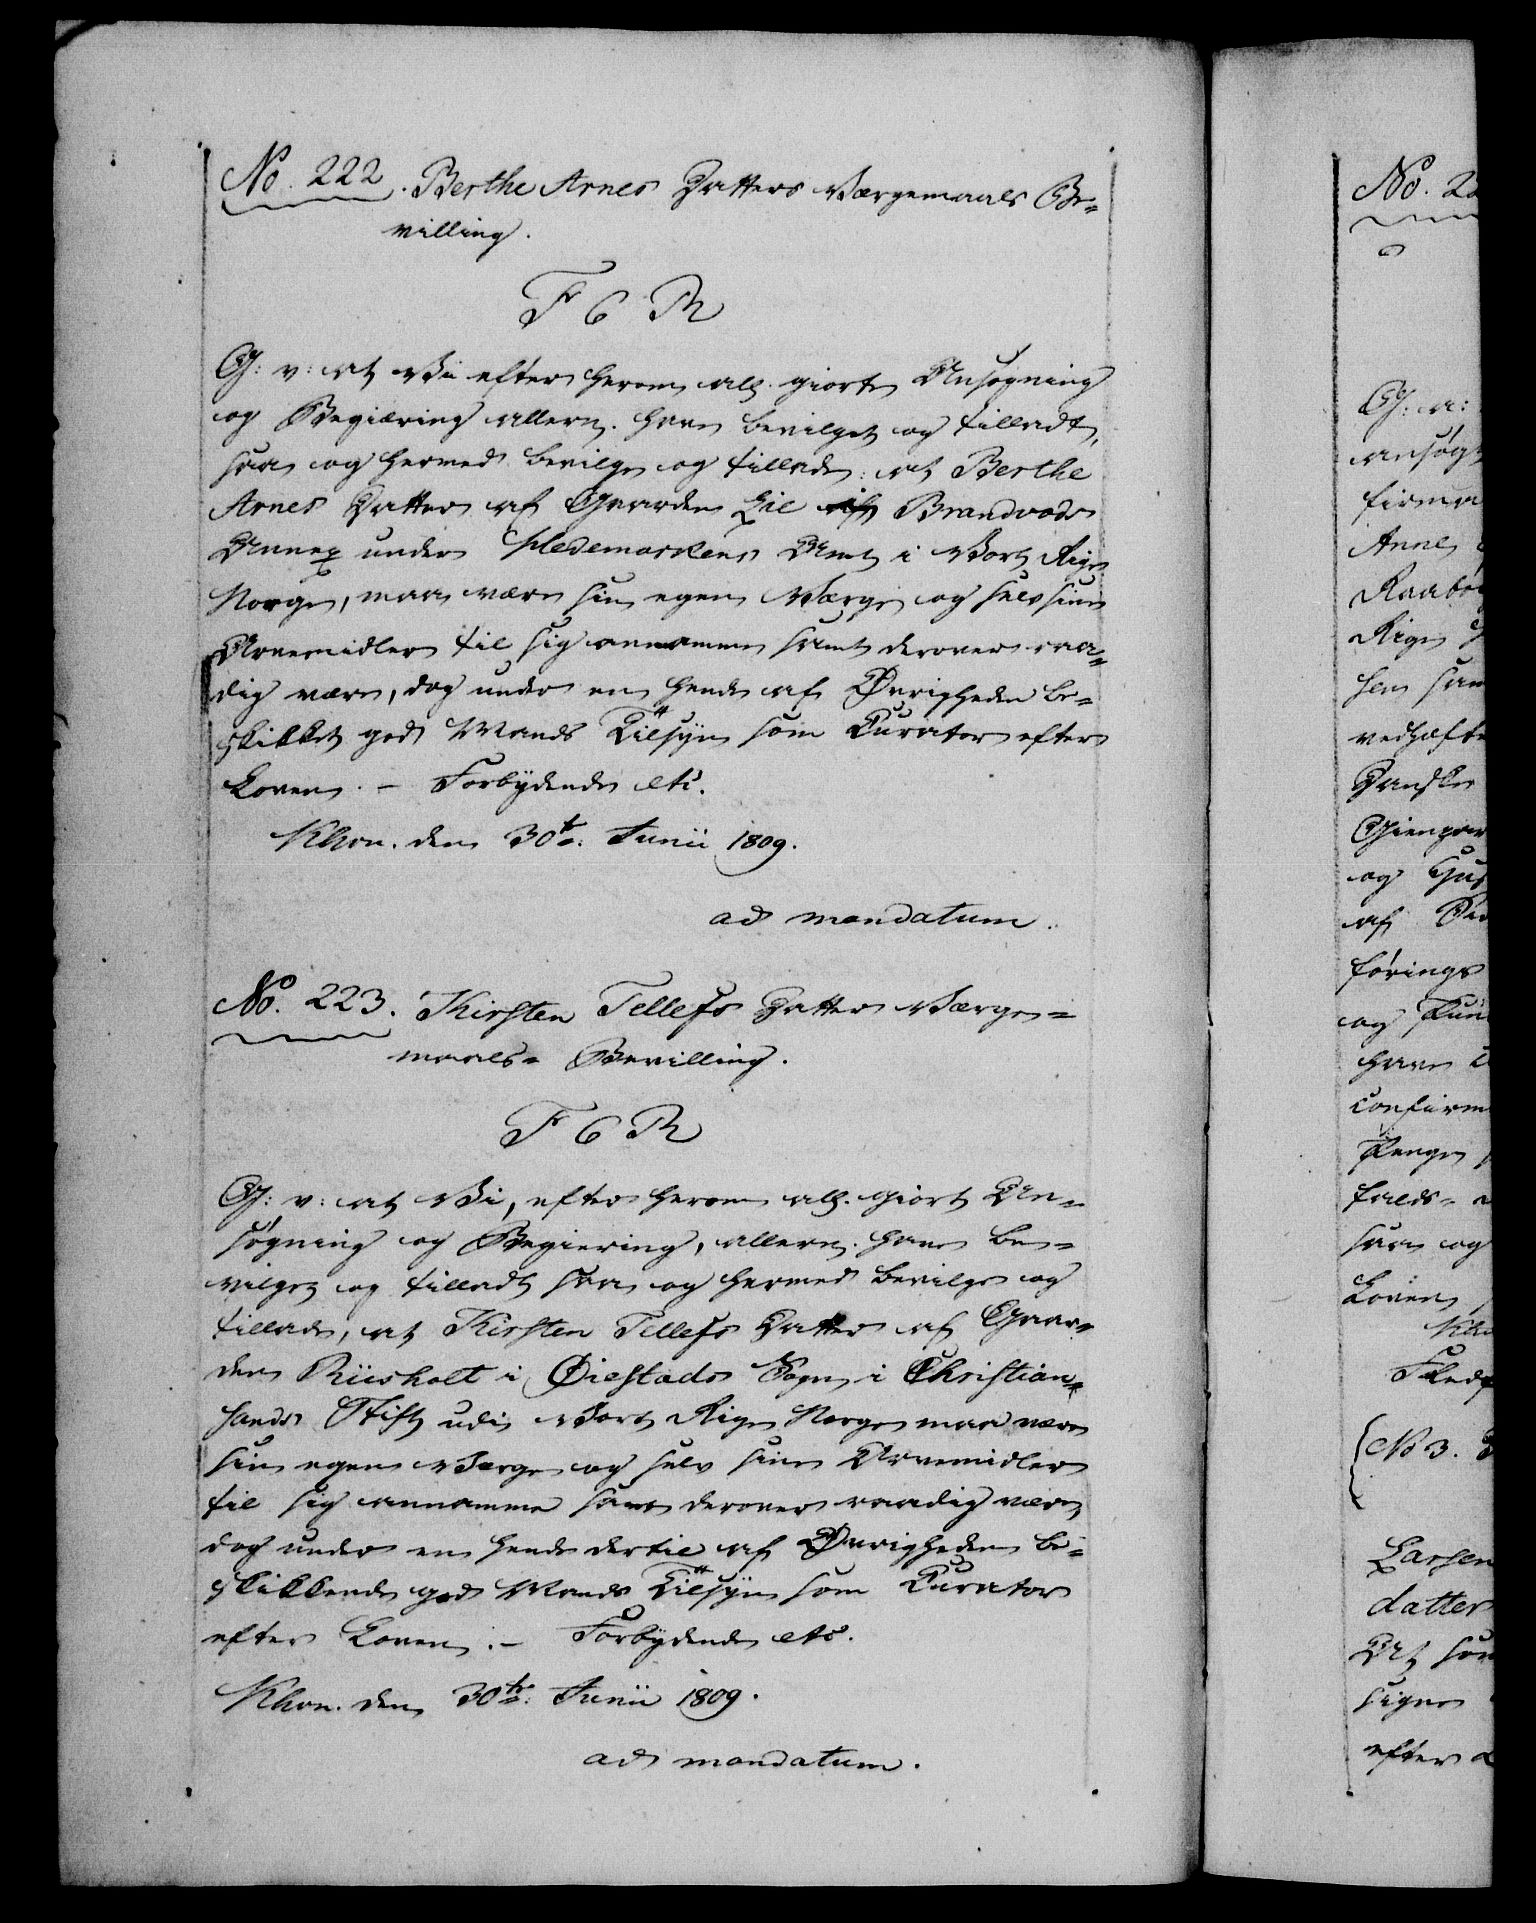 No. 222. Berthe Arnes Datters Værgemaals Be-
villing.
F 6 R
G: v: at Vi efter herom all. giorte Ansøgning
og Begiæring allern. have bevilget og tilladt,
saa og hermed bevilge og tillade: at Berthe
Arnes Datter af Gaarden Lie Brandvods
Annex under Hedemarkens Amt i Vort Rige
Norge, maa være sin egen Værge og selv sine
Arvemidler til sig annamme samt derover raa-
dig være, dog under en hende af Øvrigheden be-
skikket god Mands Tilsyn som Curator efter
Loven. - Forbydende etc.
Khvn. den 30te. Junii 1809.
ad mandatum.
No. 223. Kirsten Tellefs Datter Værge-
maals- Bevilling.
F 6 R
G: v: at Vi, efter herom all. giort An-
søgning og Begiering, allern. have be-
vilget og tilladt saa og hermed bevilge og
tillade, at Kirsten Tellefs Datter af Gaar-
den Riisholt i Øiestads Sogn i Christian-
sands Stift udi Vort Rige Norge maa være
sin egen Værge og selv sine Arvemidler
til sig annamme samt derover raadig være,
dog under en hende dertil af Øvrigheden be-
skikkende god Mands Tilsyn som Curator
efter Loven. - Forbydende etc.
Khvn. den 30te. Junii 1809.
ad mandatum.
No. 22
G: a:
ansøgt
Anne
Rige
og
af
førings
og
have
Penge
falds-
saa og
Loven,
No 3.
Larsen
datter
At
efter